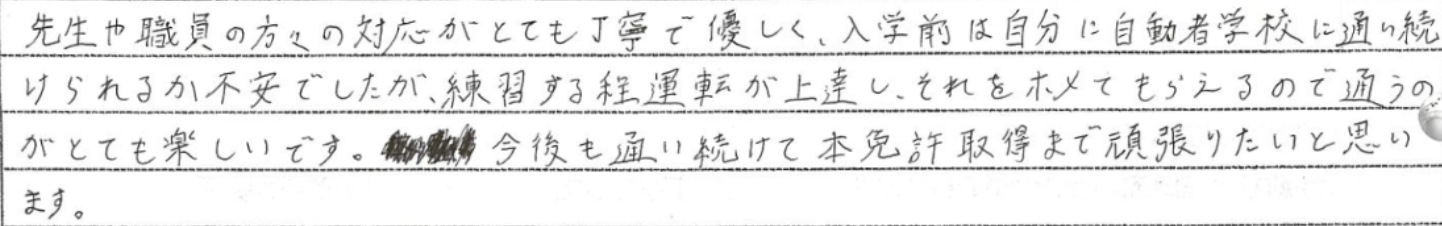 先生や職員の方々の対応がとても丁寧で優しく、入学前は自分に自動者学校に通い続
けられるか不安でしたが、練習する程運転が上達し、それをホメてもらえるので通うの
がとても楽しいです。今後も通い続けて本免許取得まで頑張りたいと思い
ます。